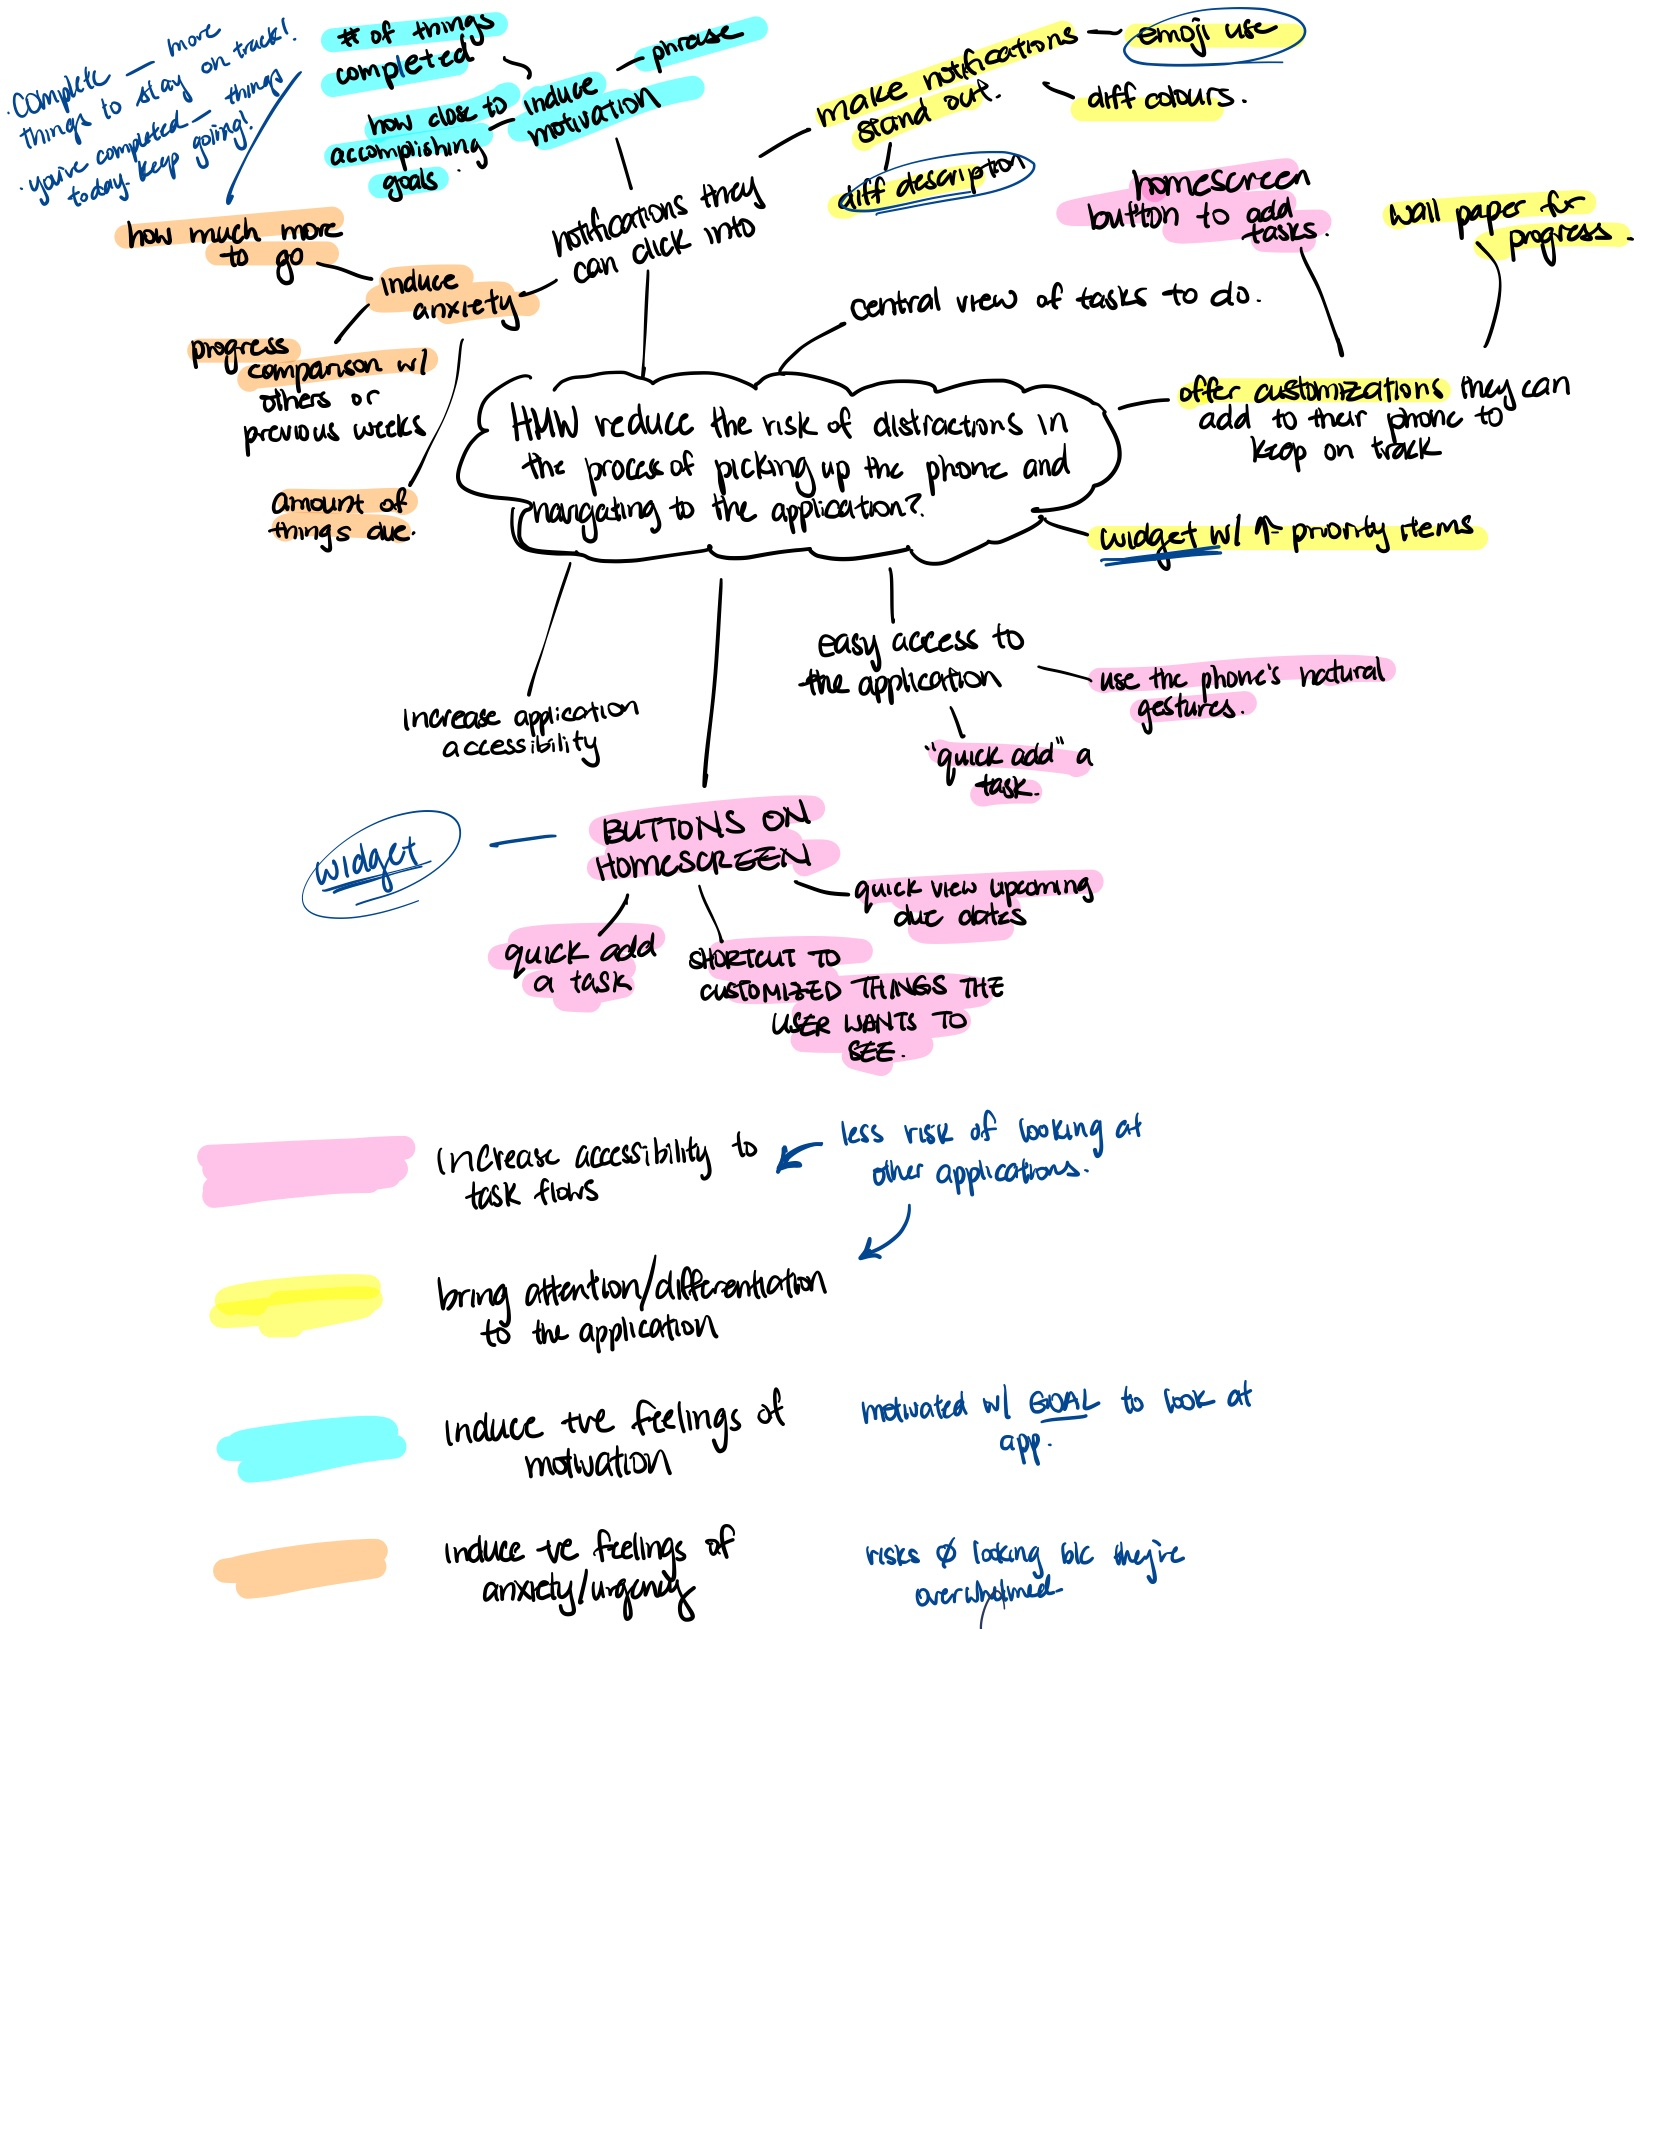 · Complete — more
things to stay on track!
· you've completed — things
today. Keep going!
# of things
completed
how close to
accomplishing
goals.
induce
motivation
phrase
make notifications
stand out.
emoji use
diff colours.
diff description
notifications they
can click into
how much more
to go
induce
anxiety
progress
comparison w/
others or
previous weeks
amount of
things due.
homescreen
button to add
tasks.
wall paper for
progress.
central view of tasks to do.
offer customizations they can
add to their phone to
keep on track
HMW reduce the risk of distractions in
the process of picking up the phone and
navigating to the application?
widget w/ ↑ priority items
easy access to
the application
use the phone's natural
gestures.
"quick add" a
task.
Increase application
accessibility
widget
BUTTONS ON
HOMESCREEN
quick view upcoming
due dates
quick add
a task
SHORTCUT TO
CUSTOMIZED THINGS THE
USER WANTS TO
SEE.
increase accessibility to
task flows
less risk of looking at
other applications.
bring attention/differentiation
to the application
induce +ve feelings of
motivation
motivated w/ GOAL to look at
app.
induce -ve feelings of
anxiety/urgency
risks Ø looking b/c they're
overwhelmed.